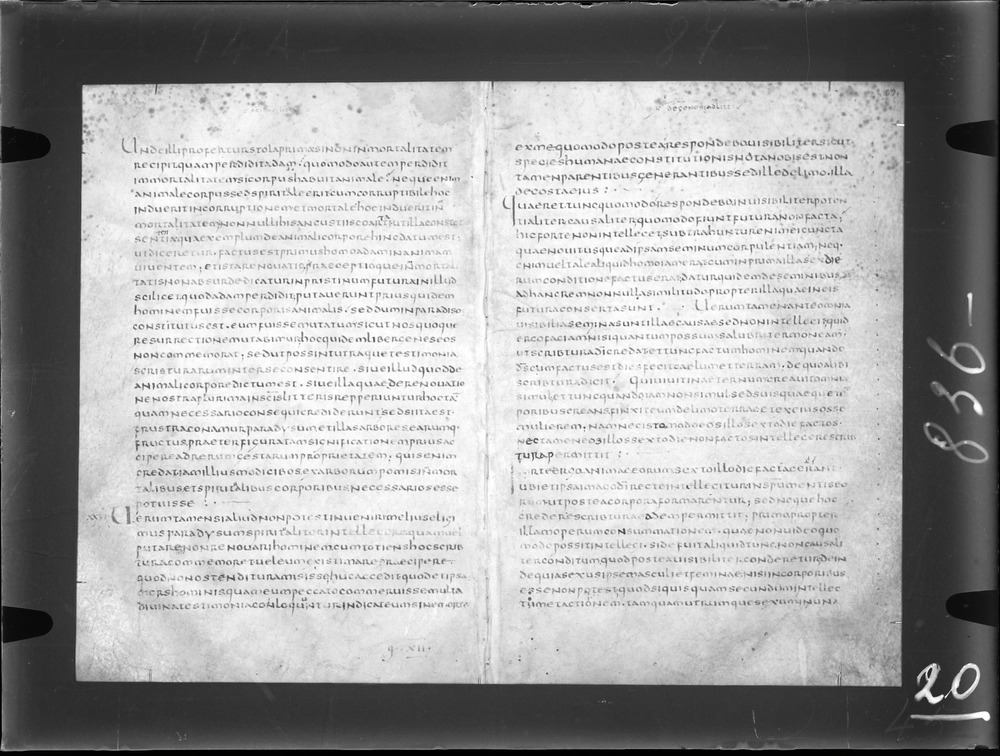 Unde illi profertur stola prima si non inmortalitatem
recipit quam perdidit adam. quomodo autem perdidit
inmortalitatem si corpus habuit animale. neque enim
animale corpus sed spiritale erit cum corruptibile hoc
induerit incorruptionem et mortale hoc induerit in
mortalitatem nonnulli his angustiis coartati
ut diceretur factus est primus homo adam in animam
viventem; et ista renovatio
tatis non absurde dicatur in pristinum futura in illud
scilicet quod adam perdidit putaverunt prius quidem
hominem fuisse corporis animalis. sed dum in paradiso
constitutus est. eum fuisse mutatum sicut nos quoque
resurrectione mutabimur hoc quidem liber geneseos
non commemorat, sed ut possint utraque testimonia
scripturarum inter se consentire. sive illud quod de
animali corpore dictum est. sive illa quae de renovatio
ne nostra plurima in scis litteris repperiuntur hoc ta
quam necessario consequi crediderunt sed si ita est
frustra conamur paradysum et illas arbores earumq.
fructus praeter figuratam significationem prius ac
cipere ad rerum gestarum proprietatem. quis enim
credat iam illius modi cibos ex arborum pomis inmor
talibus et spiritalibus corporibus necessarios esse
potuisse
Verum tamen si aliud non potest inveniri melius eligi
mus paradysum spiritaliter intellegere quam vel
putare non renovari hominem cum totiens hoc scrib
tura commemoret vel eum existimare praecipere
quod non ostenditur amisisse huc accedit quod et ipsa
mors hominis quam eum peccato commeruisse multa
divina testimonia conloquuntur indicat eum sine morte
q. XII.
de genesi ad litt
ex me quomodo postea respondebo visibiliter sicut
species humanae constitutionis nota nobis est non
tamen parentibus generantibus sed ille de limo. illa
de costa eius :
Quaeret tunc quomodo respondebo invisibiliter poten
tialiter causaliter quomodo fiunt futura non facta,
hic forte non intelleget subtrahuntur enim ei cuncta
quae novit usque ad ipsam seminum corpulentiam, neq.
enim vel tale aliquid homo iam erat cum in prima illa sex die
rum conditione factus erat datur quidem de seminibus
ad hanc rem nonnulla similitudo propter illa quae in eis
futura conserta sunt. Verum tamen ante omnia
visibilia semina sunt illae causae sed non intellegit quid
ergo faciam nisi quantum possum salubriter moneam
ut scribturae di credat et tunc factum hominem quando
ds cum factus est dies fecit caelum et terram. de quo alibi
scribtura dicit. Qui vivit in aeternum creavit omnia
simul et tunc quando iam non simul sed suis quaeque te
poribus creans finxit eum de limo terrae et ex eius osse
mulierem; nam nec isto modo eos illo sexto die factos.
nec tamen eos illo sexto die non factos intellegere scrib
tura permittit :
ubi et ipsa imago di recte intellegitur an spu mentis eo
rum ut postea corpora formarentur; sed neque hoc
credere scribtura eadem permittit; primo propter
illam operum consummationem. quae non video quo
modo possit intellegi. si defuit aliquid tunc non causali
ter conditum quod postea visibiliter conderetur dein
de quia sexus ipse masculi et feminae nisi in corporibus
esse non potest; quod si quisquam secundum intellec
tum et actionem. tamquam utrumque sexum in una
836 -
20